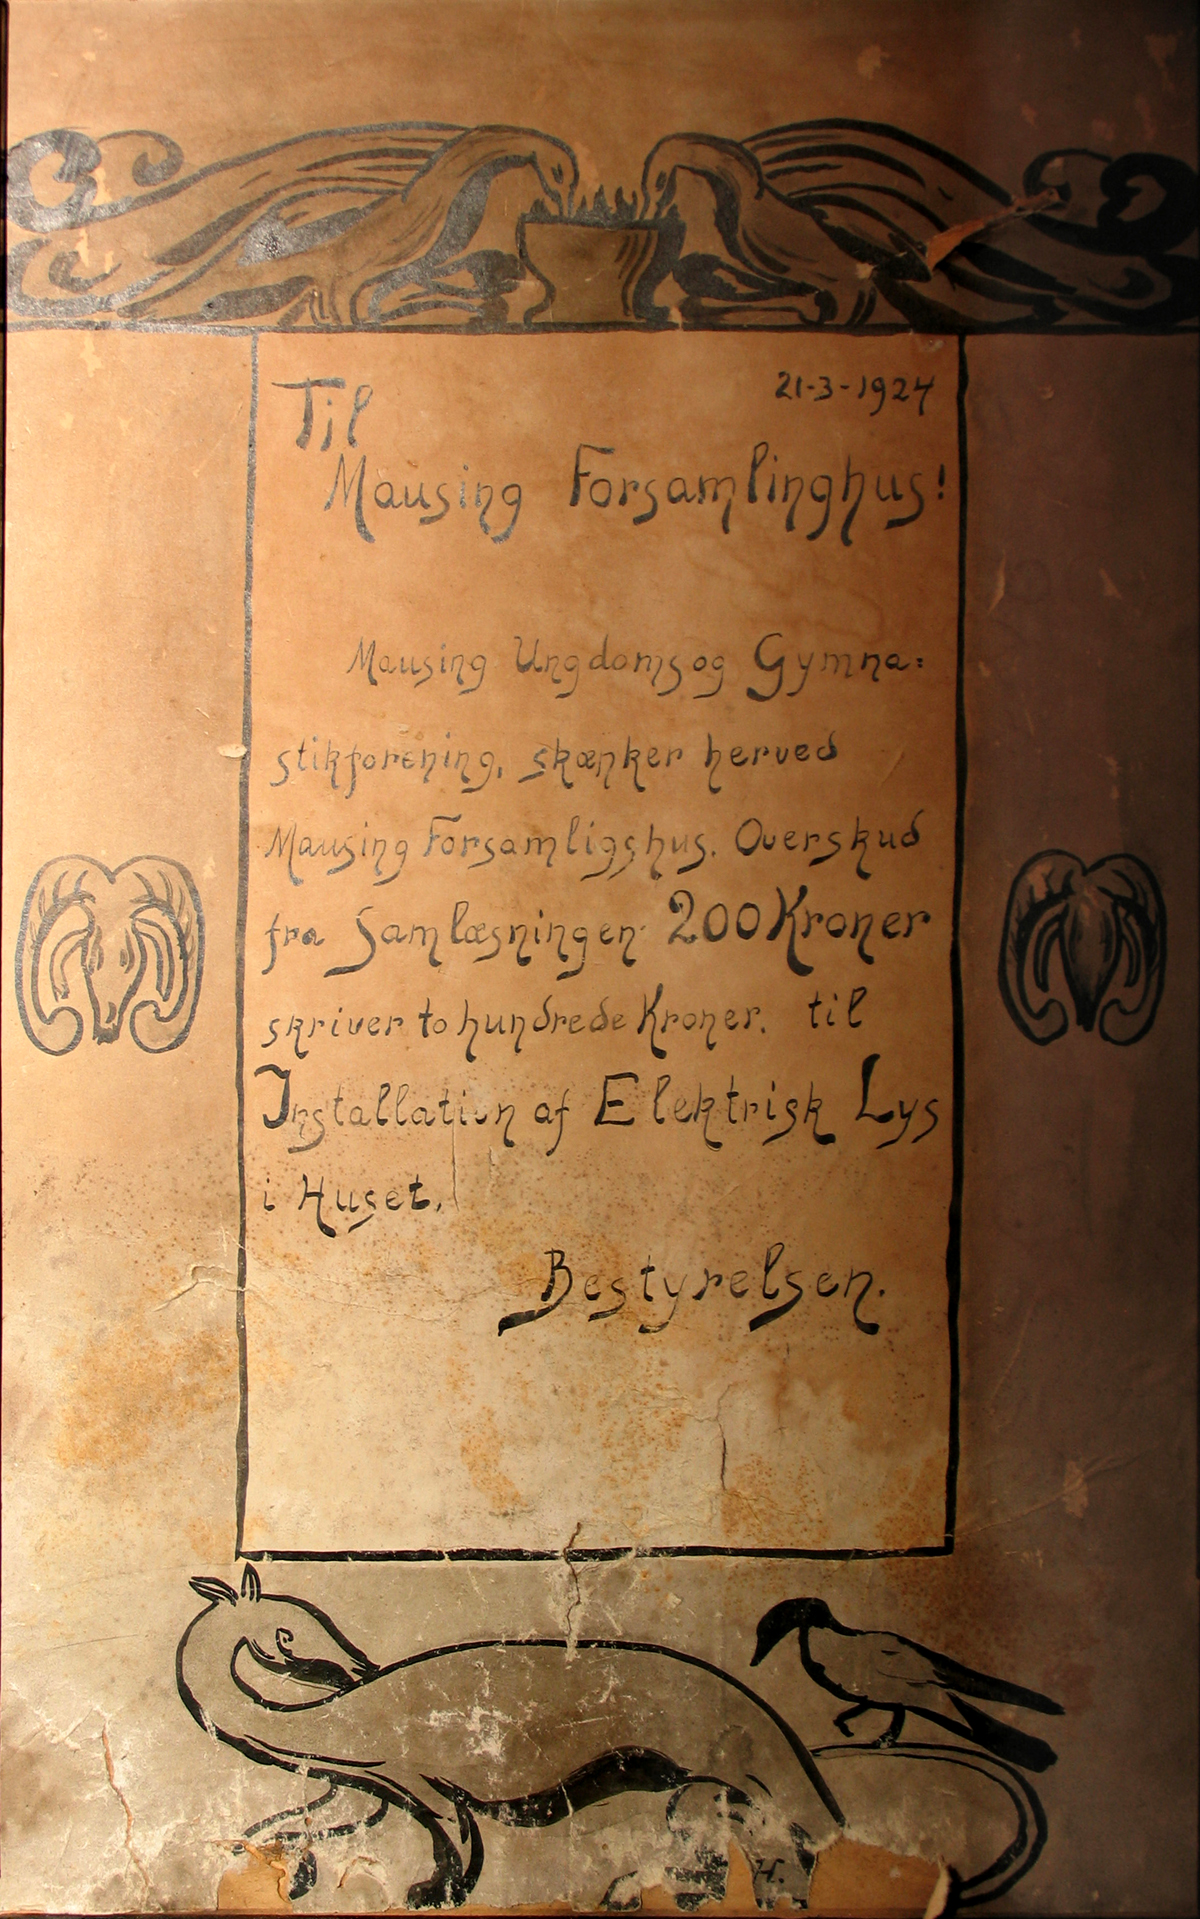 21-3-1924
Til
Mausing Forsamlinghus!
Mausing Ungdoms og Gymna=
stikforening, skænker herved
Mausing Forsamligshus. Overskud
fra Samlæsningen 200 Kroner
skriver to hundrede Kroner. til
Installation af Elektrisk Lys
i Huset.
Bestyrelsen.
H.